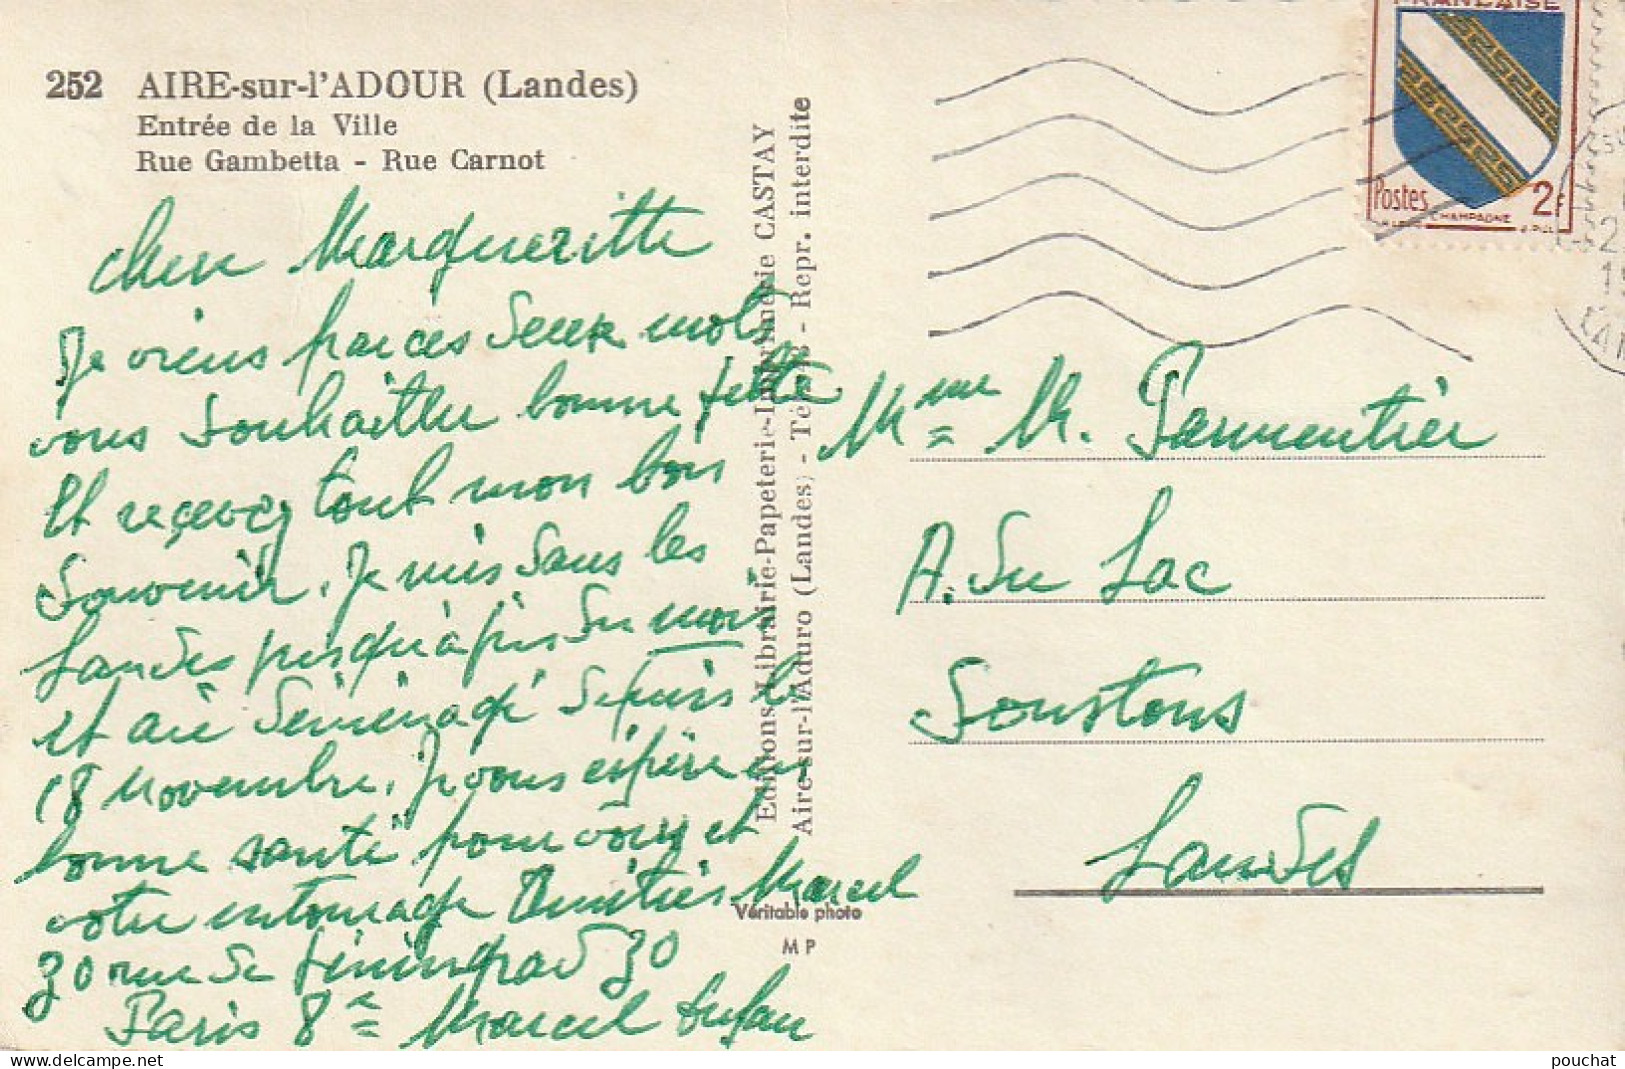 252 AIRE-sur-l'ADOUR (Landes)
Entrée de la Ville
Rue Gambetta - Rue Carnot
chere Margueritte
Je viens par ces mots
vous souhaitter bonne fette
Et recevez tout mon bon
Souvenir. Je suis dans les
Landes jusqu'à fin du mois
et ai déménagé depuis le
18 Novembre. Je vous espère en
bonne santé pour vous et
votre entourage Amitiés Marcel
30 rue de Léningrad 30
Paris 8e = Marcel
Editions Librairie-Papeterie-Imprimerie CASTAY
Aire-sur-l'Aduro (Landes) - Repr. interdite
Véritable photo
M P
FRANÇAISE
Postes 2F
CHAMPAGNE
Mme = M. Parmentier
A. du Lac
Soustons
Landes
pouchat